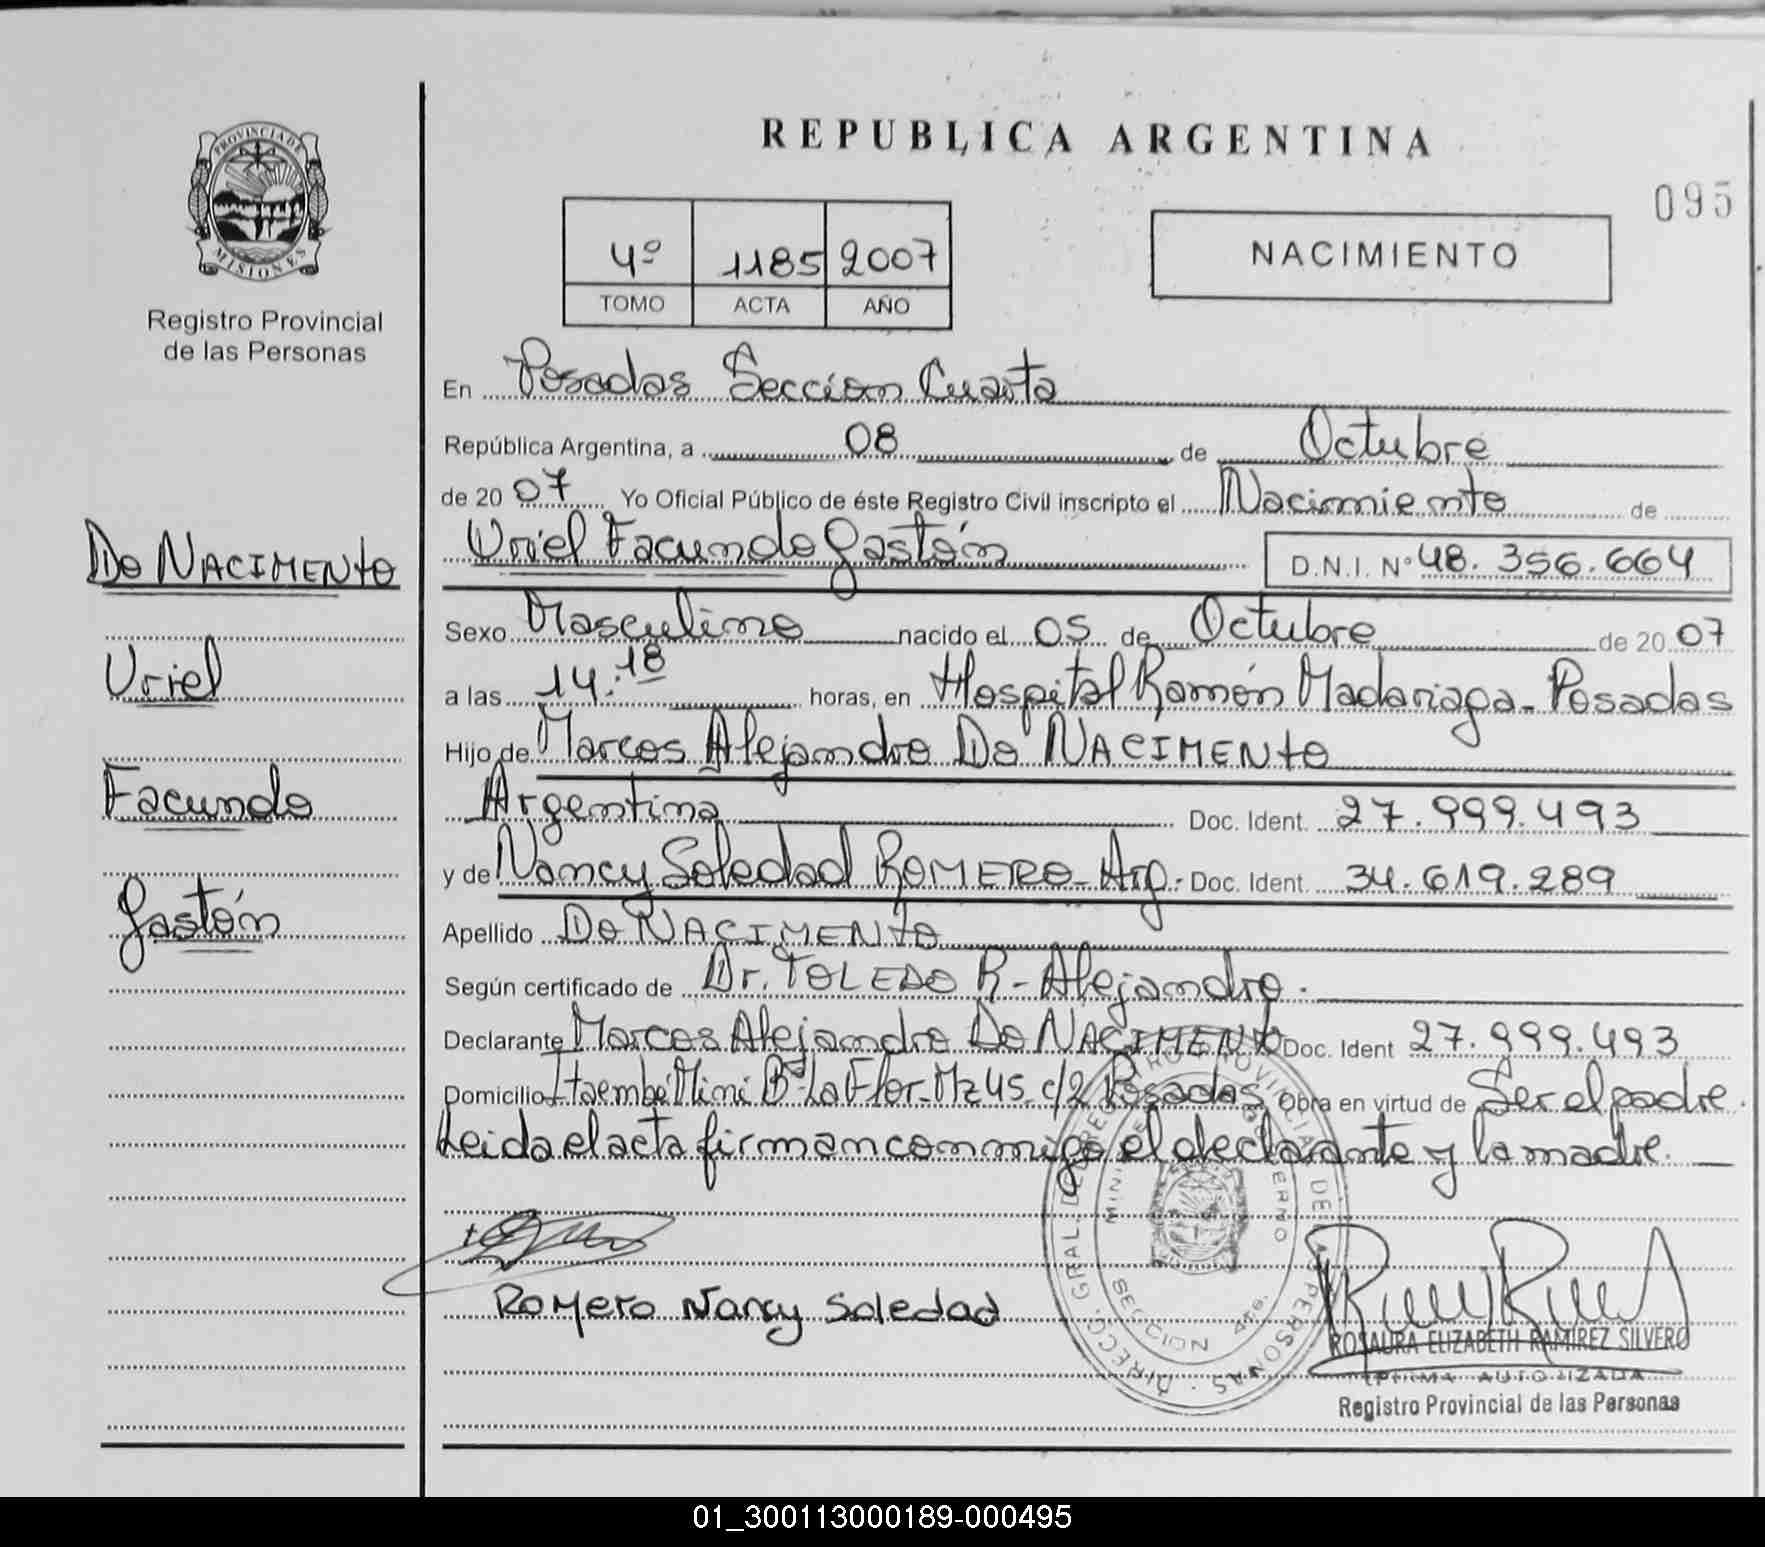 REPUBLICA ARGENTINA
095
PROVINCIA DE
MISIONES
Registro Provincial
de las Personas
4º 1185 2007
TOMO ACTA AÑO
NACIMIENTO
Do NACIMENto
Uriel
Facundo
Gastón
En Posadas Sección Cuarta
República Argentina, a 08 de Octubre
de 2007 Yo Oficial Público de éste Registro Civil inscripto el Nacimiento de
Uriel Facundo Gastón D.N.I. Nº 48.356.664
Sexo Masculino nacido el 05 de Octubre de 2007
a las 14:18 horas, en Hospital Ramón Madariaga - Posadas
Hijo de Marcos Alejandro Do NACIMENto
Argentina Doc. Ident. 27.999.493
y de Nancy Soledad ROMERO - Arg. Doc. Ident. 34.619.289
Apellido Do NACIMENto
Según certificado de Dr. TOLEDO R - Alejandro.
Declarante Marcos Alejandro Do NACIMENtO Doc. Ident 27.999.493
Domicilio Itaembé Mini Bº La Flor - Mz 45 - c/2 Posadas Obra en virtud de Ser el padre.
Leida el acta firman conmigo el declarante y la madre.
Romero Nancy Soledad
DIRECC. GRAL. DE REGISTRO PROVINCIAL DE LAS PERSONAS
SECCION 4ta.
ROSAURA ELIZABETH RAMIREZ SILVERO
FIRMA AUTORIZADA
Registro Provincial de las Personas
01_300113000189-000495